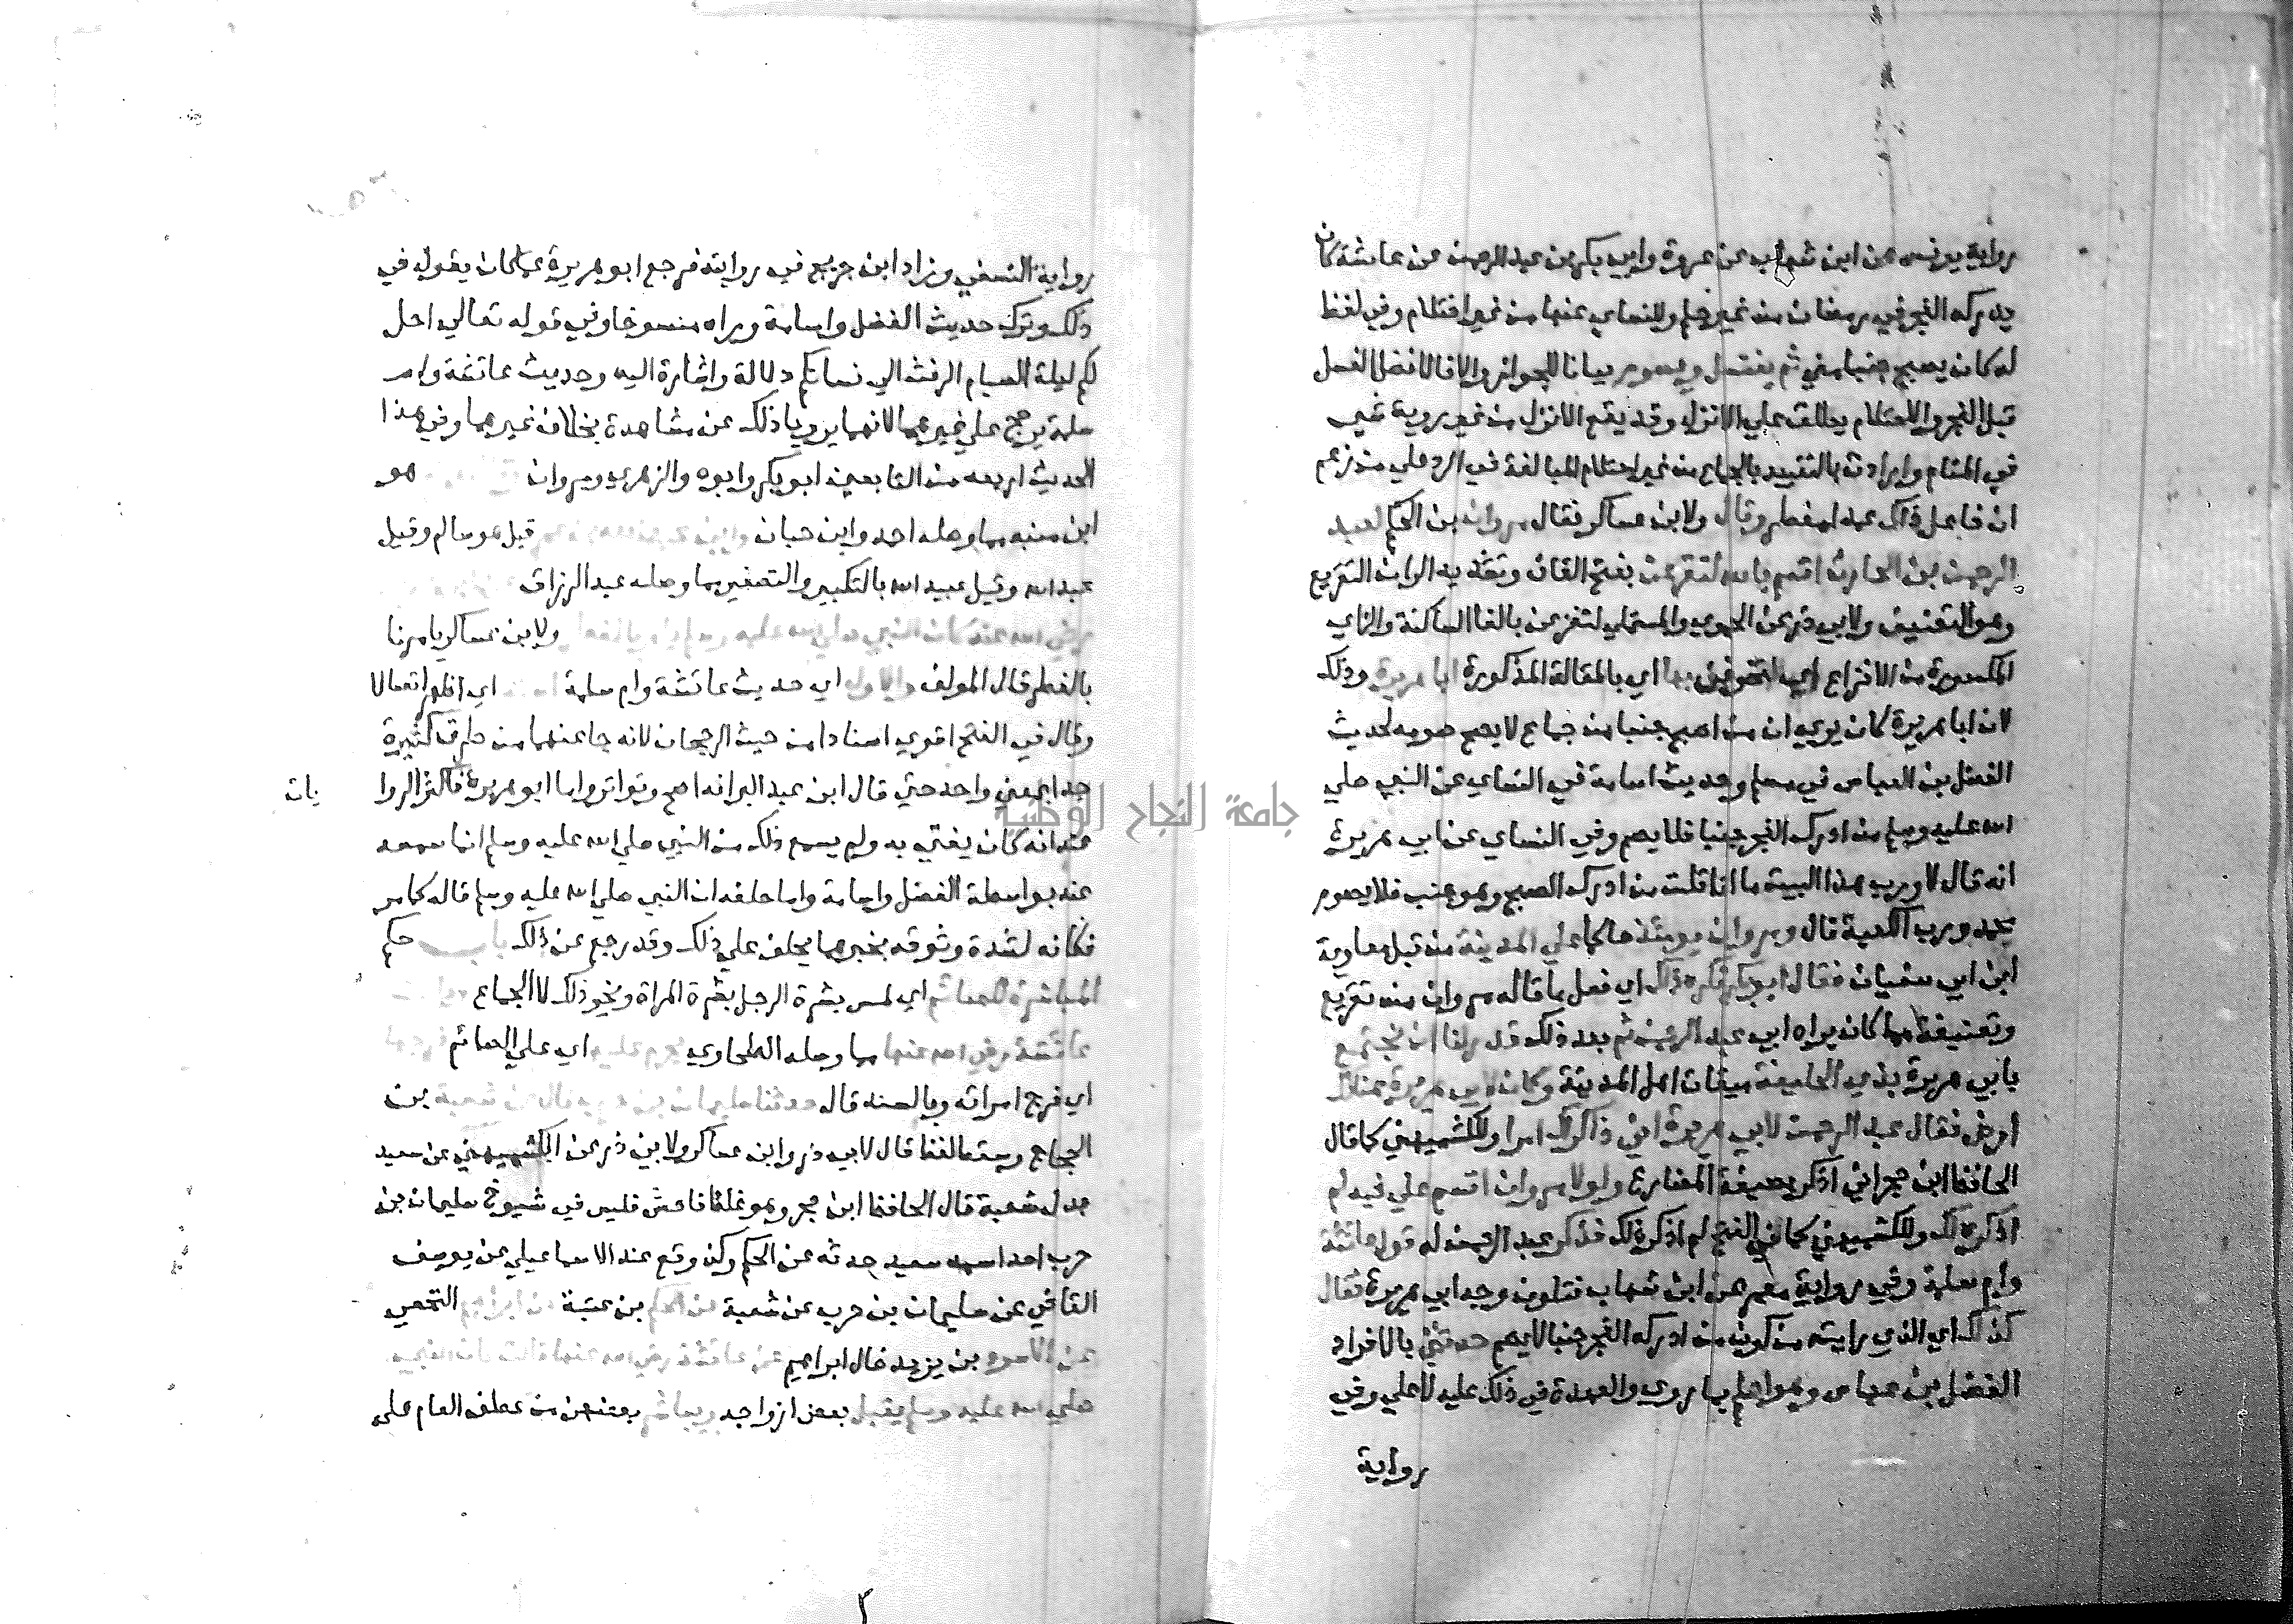 رواية يونس عن ابن شهاب عن عروة وابي بكر بن عبد الرحمن عن عايشة كان
يدركه الفجر في رمضان من غير حلم وللنساي عنها من غير احتلام وفي لفظ
له كان يصبح جنبا مني ثم يغتسل ويصوم بيانا للجواز والا فالافضل الغسل
قبل الفجر والاحتلام يطلق علي الانزال وقد يقع الانزال من غير روية شي
في المنام وارادت بالتقييد بالجماع من غير احتلام المبالغة في الرد علي من زعم
ان فاعل ذلك عمدا مفطر وقال ولابن عساكر فقال مروان بن الحكم لعبد
الرحمن بن الحارث اقسم بالله لتقرعن بفتح القاف وتشديد الرا من التقريع
وهو التعنيف ولابي ذر عن الحموي والمستملي لتفزعن بالفا الساكنة والزاي
المكسورة من الافزاع اي لتخوفن بها اي بالمقالة المذكورة ابا هريرة وذلك
لان ابا هريرة كان يروي ان من اصبح جنبا من جماع لا يصح صومه لحديث
الفضل بن العباس في مسلم وحديث اسامة في النساي عن النبي صلي
الله عليه وسلم من ادركه الفجر جنبا فلا يصم وفي النساي عن ابي هريرة
انه قال لا ورب هذا البيت ما انا قلت من ادركه الصبح وهو جنب فلا يصوم
محمد ورب الكعبة قال ومروان يومئذ حاكما علي المدينة من قبل معاوية
ابن ابي سفيان فقال ابو بكر فكره ذلك اي فعل ما قاله مروان من تقريع
وتعنيفه مما كان يراه ابي عبد الرحمن ثم بعد ذلك قدر لنا ان نجتمع
بابي هريرة بذي الحليفة ميقات اهل المدينة وكان لابي هريرة هنالك
ارض فقال عبد الرحمن لابي هريرة اني ذاكر لك امرا وللكشميهني كما قال
الحافظ ابن حجر اني اذكر بصيغة المضارع ولولا مروان اقسم علي فيه لم
اذكره لك وللكشميهني كما في الفتح لم اذكر ذلك فذكر عبد الرحمن له قول عائشة
وام سلمة وفي رواية معمر عن ابن شهاب فتلون وجه ابي هريرة فقال
كذلك اي الذي رايته من كون من ادركه الفجر جنبا لا يصم حدثني بالافراد
الفضل بن عباس وهو اعلم بما روي والعهدة في ذلك عليه لا علي وفي
رواية
رواية النسفي وزاد ابن جريج في روايته فرجع ابو هريرة عما كان يقول في
ذلك وترك حديث الفضل واسامة وراه منسوخا وفي قوله تعالي احل
لكم ليلة الصيام الرفث الي نسائكم دلالة واشارة اليه وحديث عائشة وام
سلمة يرجح علي غيرهما لانهما يرويا ذلك عن مشاهدة بخلاف غيرهما وفي هذا
الحديث اربعه من التابعين ابو بكر وابوه والزهري ومروان هو
ابن منبه مما وصله احمد وابن حبان قيل هو سالم وقيل
عبد الله وقيل عبيد الله بالتكبير والتصغير مما وصله عبد الرزاق
رضي الله عنه كان النبي صلي الله عليه وسلم يامر بالفطر ولابن عساكر يامرنا
بالفطر قال المولف والاول اي حديث عائشة وام سلمة اسند اي اظهر اتصالا
وقال في الفتح اقوي اسنادا من حيث الرجحان لانه جا عنهما من طرق كثيرة
جدا بمعني واحد حتي قال ابن عبد البر انه صح وتواتر واما ابو هريرة فاكثر الروا يات
عنه انه كان يفتي به ولم يسمع ذلك من النبي صلي الله عليه وسلم انما سمعه
عنه بواسطة الفضل واسامة واما حلفه ان النبي صلي الله عليه وسلم قاله كما مر
فكانه لشدة وثوقه بخبرهما يحلف علي ذلك وقد رجع عن ذلك باب حكم
المباشرة للصائم اي لمس بشرة الرجل بشرة المراة ونحو ذلك لا الجماع
عائشة رضي الله عنها مما وصله الطحاوي يحرم عليه اي علي الصائم فرجها
اي فرج امراته وبالسند قال حدثنا سليمان بن حرب قال عن شعبة بن
الحجاج وسقط لفظ قال لابي ذر وابن عساكر ولابن ذر عن الكشميهني عن سعيد
بدل شعبة قال الحافظ ابن حجر وهو غلط فاحش فليس في شيوخ سليمان بن
حرب احد اسمه سعيد حدثه عن الحكم وكن وقع عند الاسماعيلي عن يوسف
القاضي عن سليمان بن حرب عن شعبة عن الحكم بن عتبة عن ابراهيم النخعي
عن الاسود بن يزيد خال ابراهيم عن عائشة رضي الله عنها قالت كان النبي
صلي الله عليه وسلم يقبل بعض ازواجه ويباشر بعضهن من عطف العام علي
جامعة النجاح الوطنية